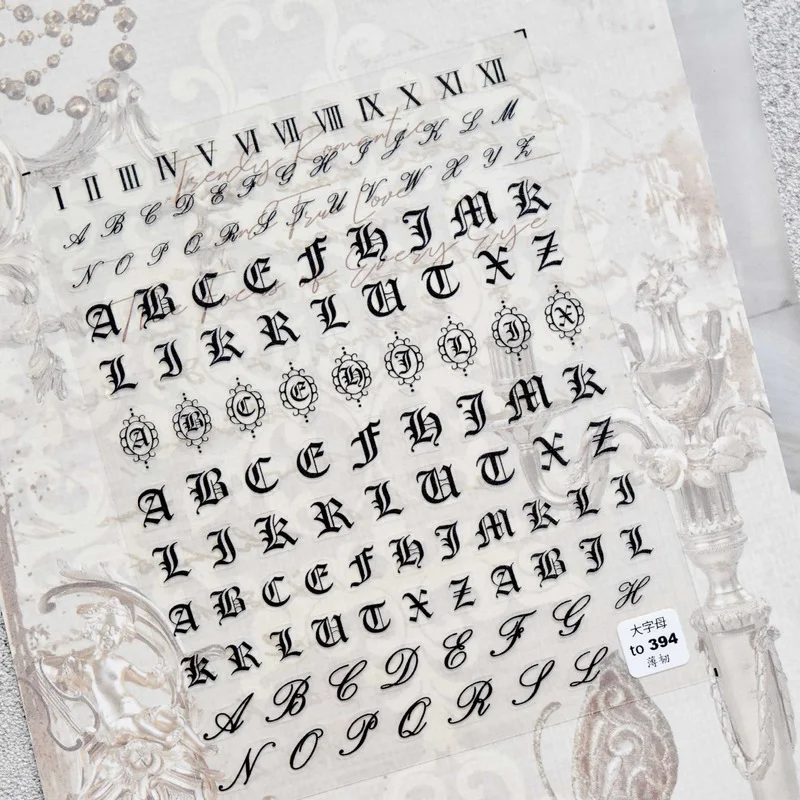 I II III IV V VI VII VIII IX X XI XII
A B C D E F G H I J K L M
N O P Q R S T U V W X Y Z
A B C E F H I M K
L I K R L U T X Z
A B C E H I L I X
A B C E F H I M K
L I K R L U T X Z
A B C E F H I M K L I
K R L U T X Z A B I L
A B C D E F G H
N O P Q R S L
Trendy Romantic
True Love
The Focus of Every Eye
大字母
to 394
薄韧